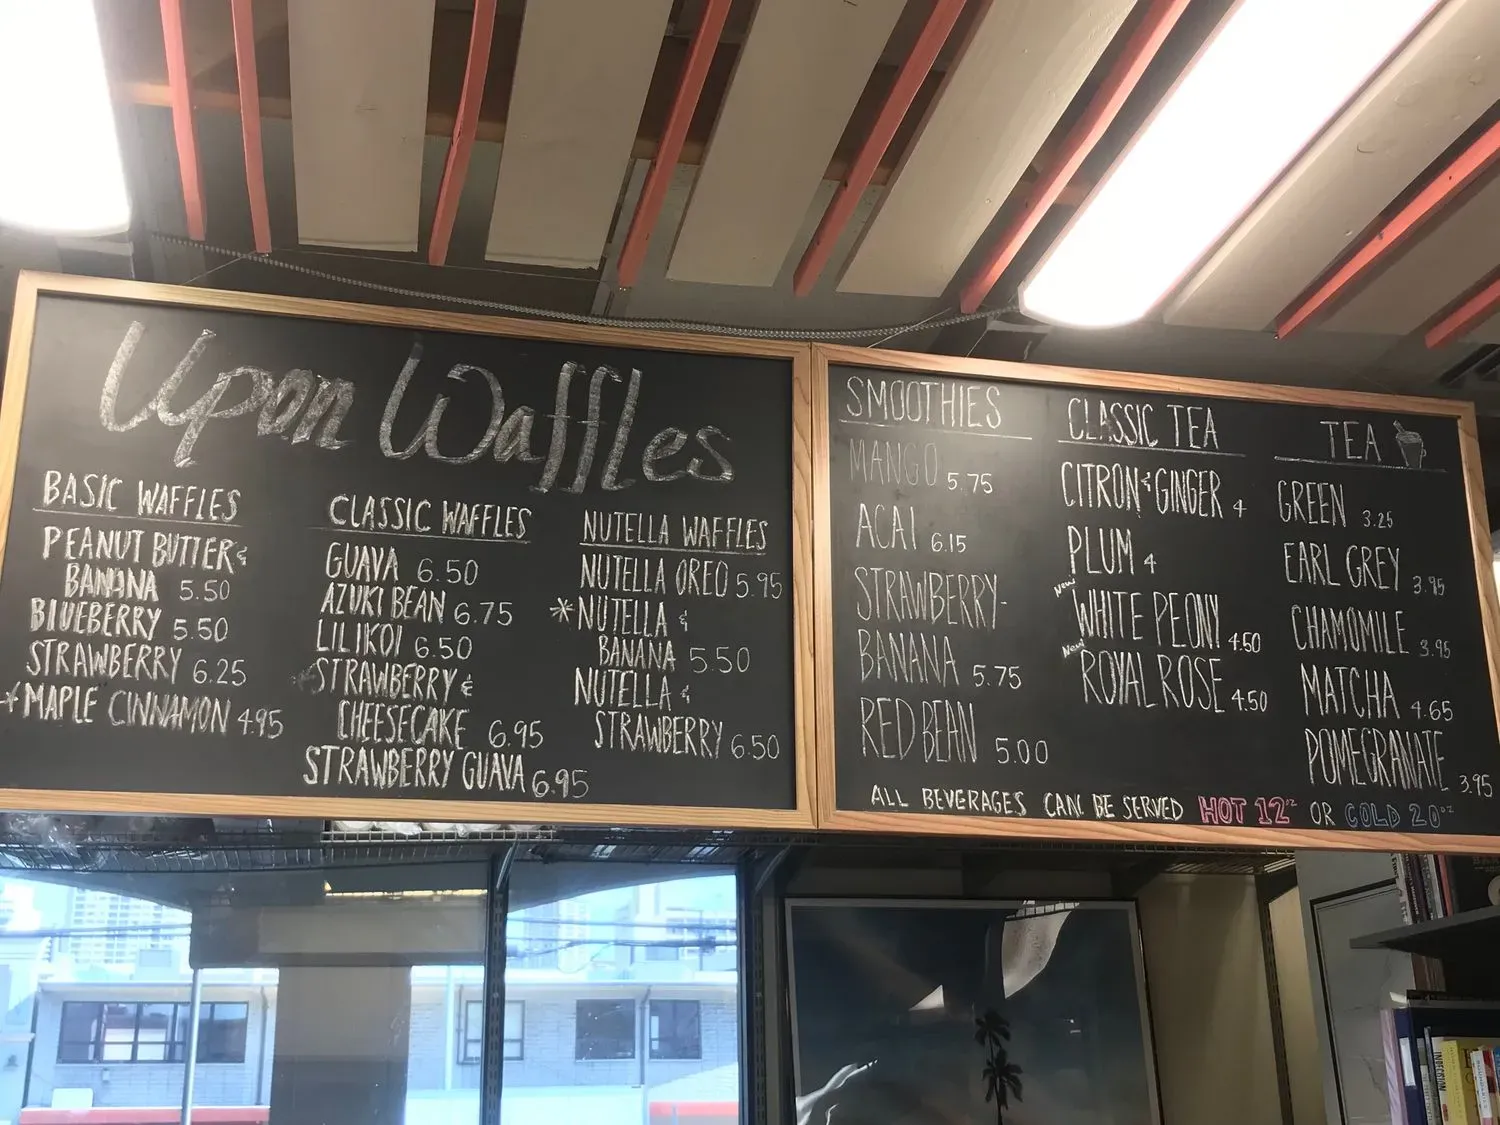 Upon Waffles
BASIC WAFFLES
PEANUT BUTTER &
BANANA 5.50
BLUEBERRY 5.50
STRAWBERRY 6.25
*MAPLE CINNAMON 4.95
CLASSIC WAFFLES
GUAVA 6.50
AZUKI BEAN 6.75
LILIKOI 6.50
*STRAWBERRY &
CHEESECAKE 6.95
STRAWBERRY GUAVA 6.95
NUTELLA WAFFLES
NUTELLA OREO 5.95
*NUTELLA &
BANANA 5.50
NUTELLA &
STRAWBERRY 6.50
SMOOTHIES
MANGO 5.75
ACAI 6.15
STRAWBERRY-
BANANA 5.75
RED BEAN 5.00
CLASSIC TEA
CITRON & GINGER 4
PLUM 4
New
WHITE PEONY 4.50
New
ROYAL ROSE 4.50
TEA
GREEN 3.25
EARL GREY 3.95
CHAMOMILE 3.95
MATCHA 4.65
POMEGRANATE 3.95
ALL BEVERAGES CAN BE SERVED HOT 12oz OR COLD 20oz